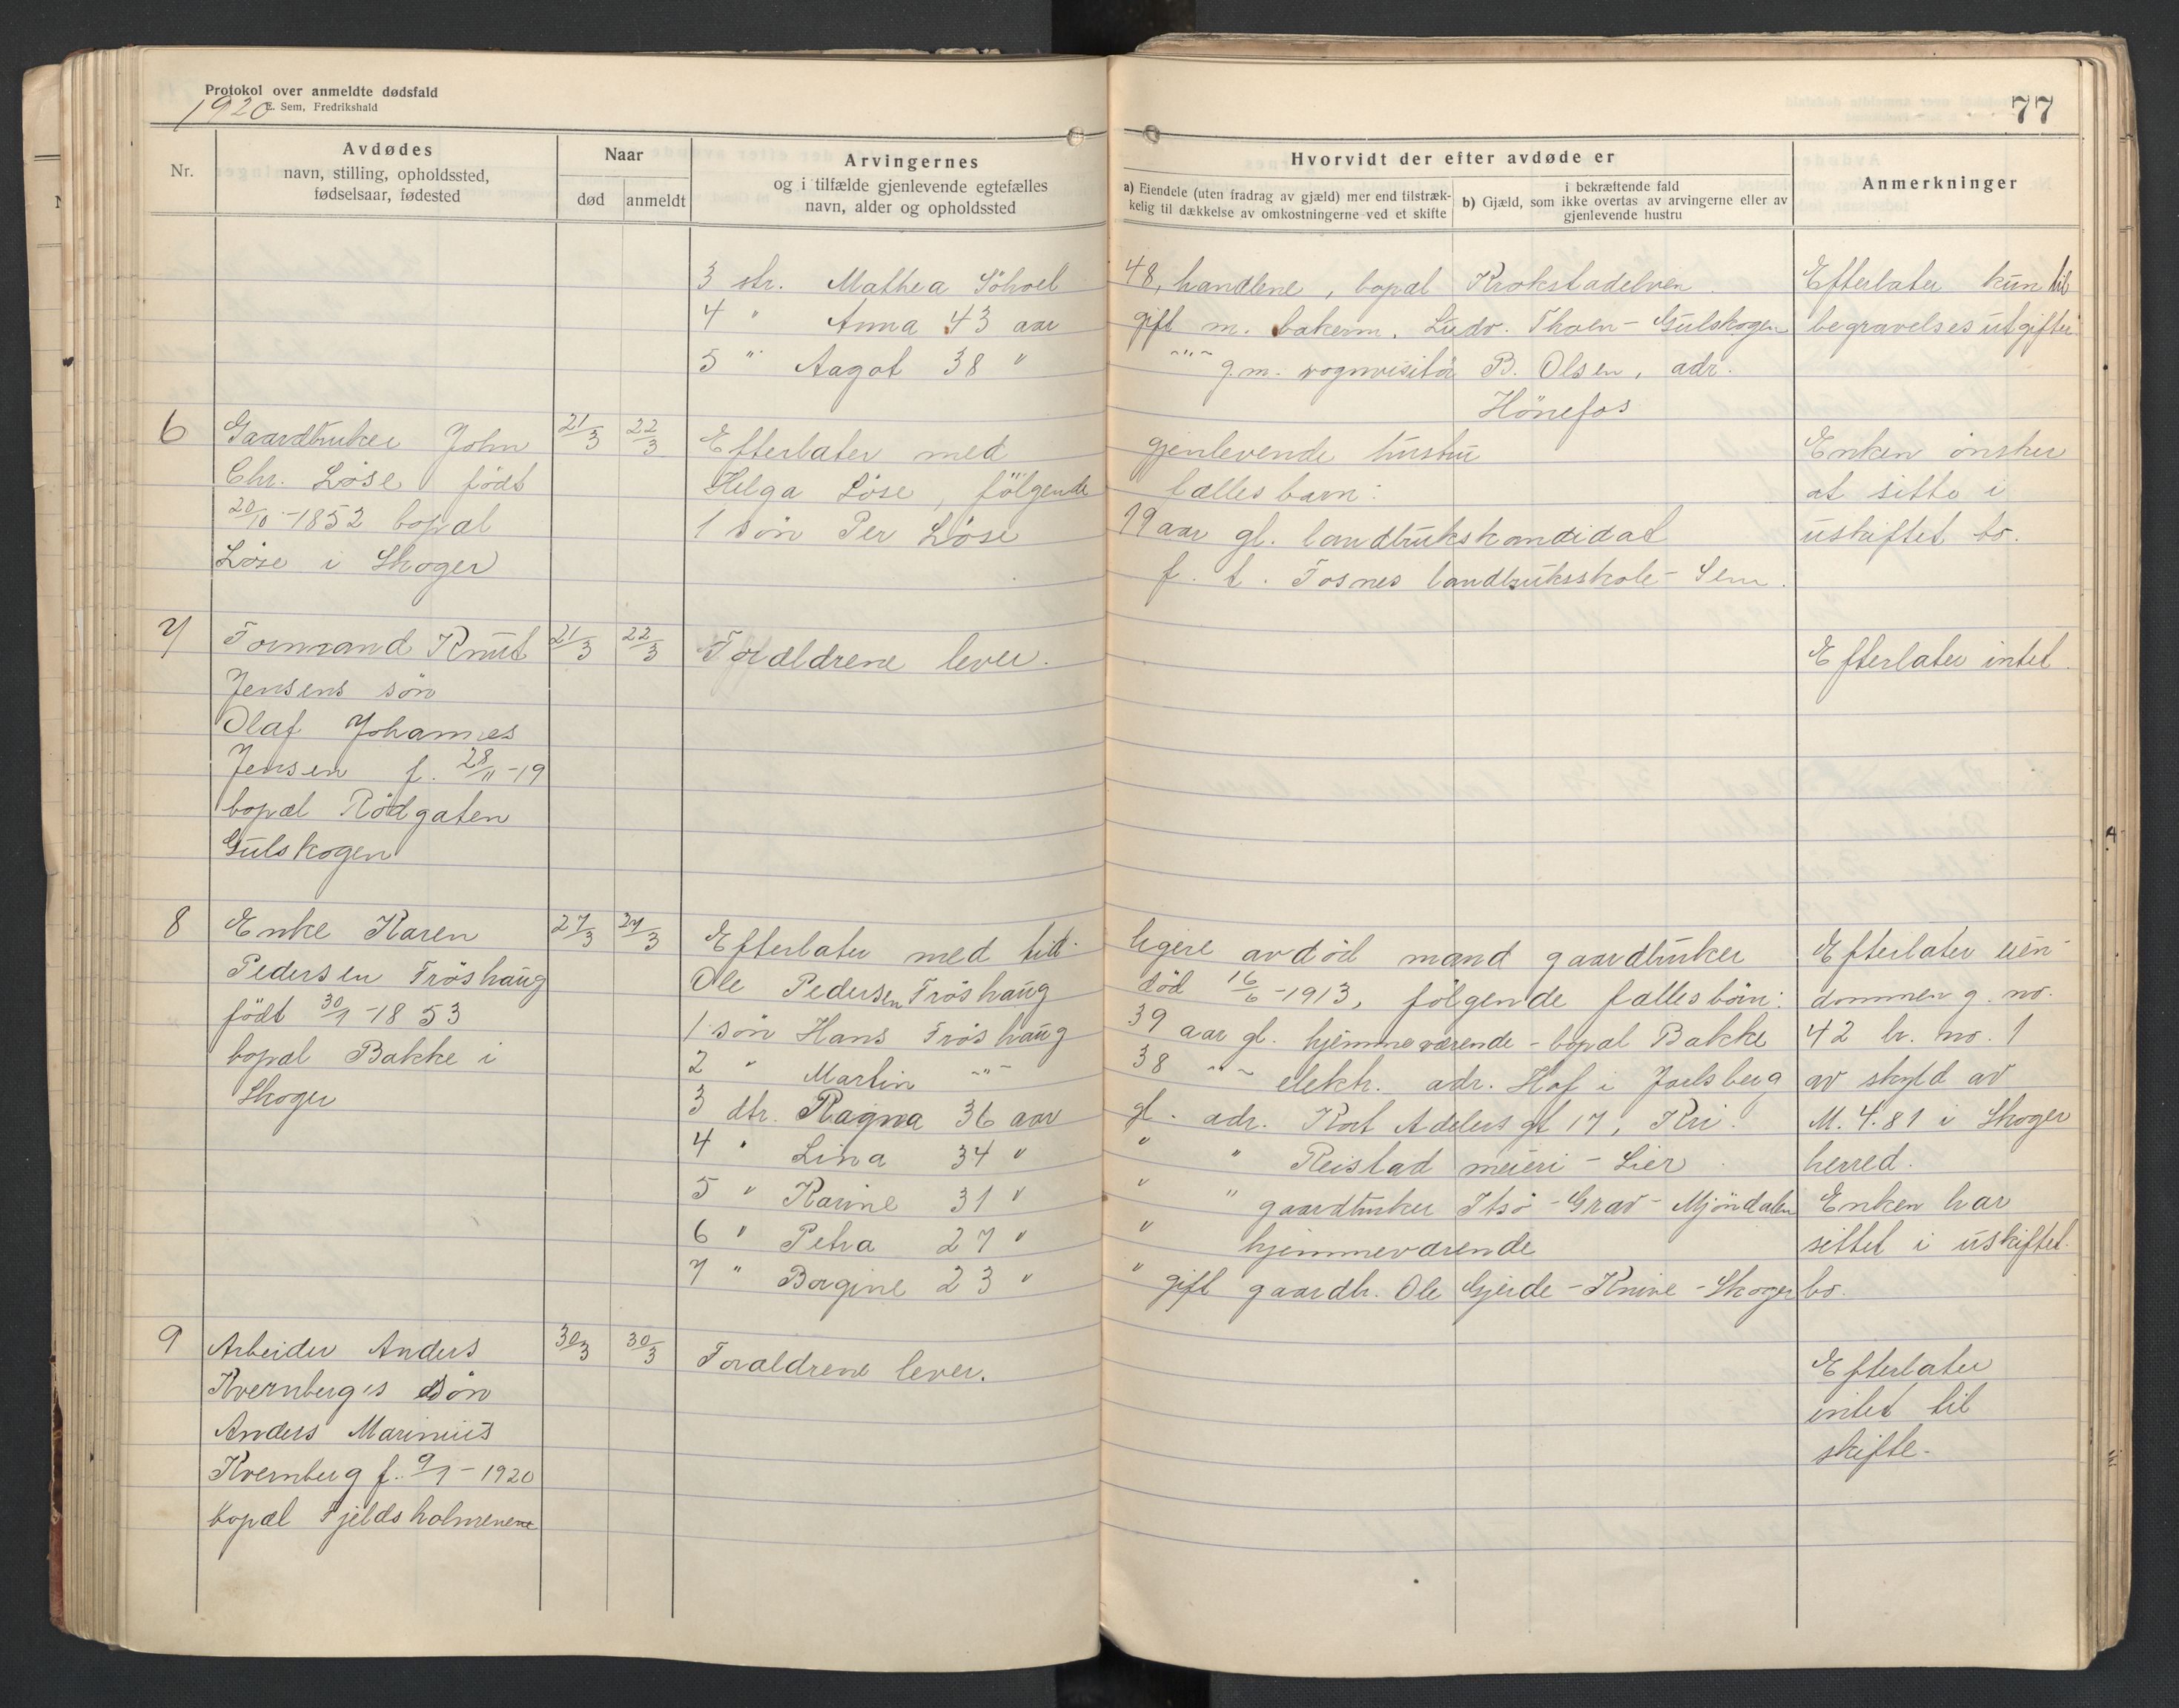 Protokol over anmeldte dødsfald
E. Sem, Fredrikshald
1920
77
Nr.
Avdødes
navn, stilling, opholdssted,
fødselsaar, fødested
Naar
død
anmeldt
Arvingernes
og i tilfælde gjenlevende egtefælles
navn, alder og opholdssted
Hvorvidt der efter avdøde er
a) Eiendele (uten fradrag av gjæld) mer end tilstræk-
kelig til dækkelse av omkostningerne ved et skifte
i bekræftende fald
b) Gjæld, som ikke overtas av arvingerne eller av
gjenlevende hustru
Anmerkninger
3 str. Mathea 48, handlene, bopæl Krokstadelven. Efterlater kun til
4 " Anna 43 aar gift m. bakerm. Ludv. Thoen - Gulskogen begravelsesutgifter
5 " Aagot 38 " -"- g.m. vognvisitør B. Olsen, adr.
Hönefos
6 Gaardbruker John 21/3 22/3 Efterlater med gjenlevende hustru Enken önsker
Chr. Löse födt Helga Löse, fölgende fælles barn: at sitte i
20/10-1852 bopæl 1 sön Per Löse 19 aar gl. landbrukskandidat uskiftet bo.
Löse i Skoger f. t. Fosnes landbruksskole - Sem.
7 Formand Knut 21/3 22/3 Forældrene lever. Efterlater intet.
Jensens sön
Olaf Johannes
Jensen f. 28/11-19
bopæl Rödgaten
Gulskogen
8 Enke Karen 27/3 27/3 Efterlater med tid- ligere avdöd mand gaardbruker Efterlater eien-
Pedersen Fröshaug Ole Pedersen Fröshaug död 16/6-1913, fölgende fælles börn: dommen g. no.
födt 30/1-1853 1 sön Hans Fröshaug 39 aar gl. hjemmeværende - bopæl Bakke 42 br. no. 1
bopæl Bakke i 2 " Martin -"- 38 -"- elektr. adr. Hof i Jarlsberg av skyld av
Skoger 3 dtr. Ragna 36 aar gl. adr. Kort Adelers gt 17, Kri. M. 4.81 i Skoger
4 " Lina 34 " " " Reistad meieri - Lier. herred.
5 " Karine 31 " " " gaardbruker - Mjöndalen Enken har
6 " Petra 27 " " hjemmeværende sittet i uskiftet
7 " Borgine 23 " " gift gaardbr. Ole Gjerde - Knive - Skoger bo.
9 Arbeider Anders 30/3 30/3 Forældrene lever. Efterlater
Kvernberg's sön intet til
Anders Marinius skifte.
Kvernberg f. 9/1-1920
bopæl Fjeldsholmenene